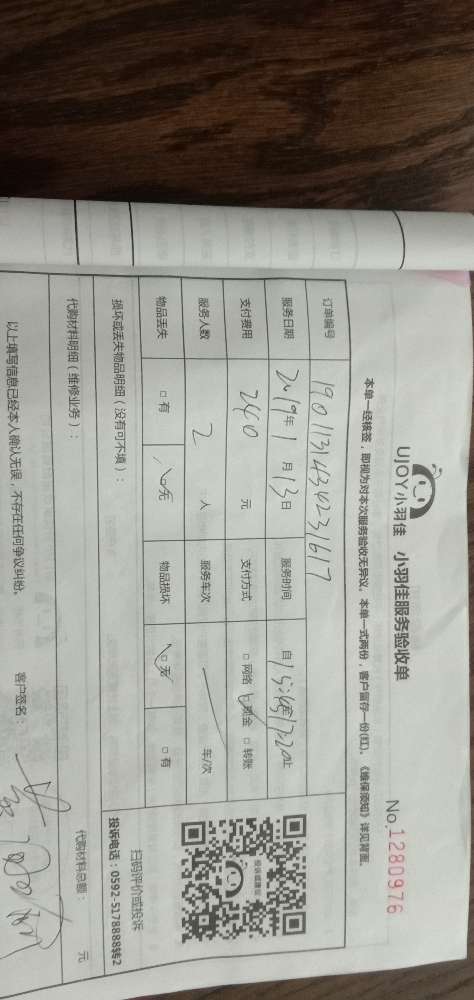 UJOY小羽佳 小羽佳服务验收单
No.1280976
本单一经核签，即视为对本次服务验收无异议。本单一式两份，客户留存一份(红)。《维保须知》详见背面。
订单编号 1901131434231617
服务日期 2019年1月13日 服务时间 自 止
支付费用 240 元 支付方式 □网络 □现金 □转账
服务人数 2 人 服务车次 车/次
物品丢失 □有 □无 物品损坏 □无 □有
损坏或丢失物品明细（没有可不填）：
扫码评价或投诉
投诉电话：0592-5178888转2
代购材料明细（维修业务）：
代购材料总额： 元
以上填写信息已经本人确认无误，不存在任何争议纠纷。 客户签名：